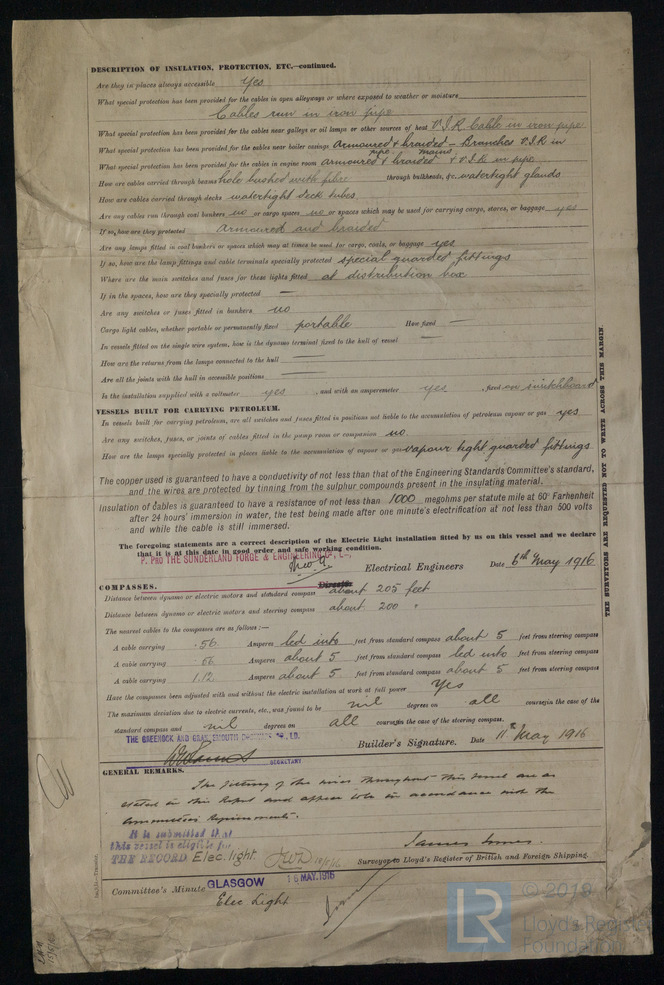 DESCRIPTION OF INSULATION, PROTECTION, ETC.—continued.
Are they in places always accessible Yes
What special protection has been provided for the cables in open alleyways or where exposed to weather or moisture
Cables run in iron pipe
What special protection has been provided for the cables near galleys or oil lamps or other sources of heat V.I.R. Cable in iron pipe
What special protection has been provided for the cables near boiler casings armoured & braided – Branches V.I.R in pipe
What special protection has been provided for the cables in engine room armoured & braided mains & V.I.R in pipe
How are cables carried through beams hole bushed with fibre through bulkheads, &c. watertight glands
How are cables carried through decks watertight deck tubes
Are any cables run through coal bunkers no or cargo spaces no or spaces which may be used for carrying cargo, stores, or baggage yes
If so, how are they protected armoured and braided
Are any lamps fitted in coal bunkers or spaces which may at times be used for cargo, coals, or baggage yes
If so, how are the lamp fittings and cable terminals specially protected special guarded fittings
Where are the main switches and fuses for these lights fitted at distribution box
If in the spaces, how are they specially protected —
Are any switches or fuses fitted in bunkers no
Cargo light cables, whether portable or permanently fixed portable How fixed —
In vessels fitted on the single wire system, how is the dynamo terminal fixed to the hull of vessel —
How are the returns from the lamps connected to the hull —
Are all the joints with the hull in accessible positions —
Is the installation supplied with a voltmeter yes , and with an amperemeter yes , fixed on switchboard
VESSELS BUILT FOR CARRYING PETROLEUM.
In vessels built for carrying petroleum, are all switches and fuses fitted in positions not liable to the accumulation of petroleum vapour or gas yes
Are any switches, fuses, or joints of cables fitted in the pump room or companion no
How are the lamps specially protected in places liable to the accumulation of vapour or gas vapour tight guarded fittings
The copper used is guaranteed to have a conductivity of not less than that of the Engineering Standards Committee's standard,
and the wires are protected by tinning from the sulphur compounds present in the insulating material.
Insulation of cables is guaranteed to have a resistance of not less than 1000 megohms per statute mile at 60° Farhenheit
after 24 hours' immersion in water, the test being made after one minute's electrification at not less than 500 volts
and while the cable is still immersed.
The foregoing statements are a correct description of the Electric Light installation fitted by us on this vessel and we declare
that it is at this date in good order and safe working condition.
P. PRO THE SUNDERLAND FORGE & ENGINEERING CO., LTD.
Electrical Engineers Date 6th May 1916
COMPASSES.
Distance between dynamo or electric motors and standard compass about 205 feet
Distance between dynamo or electric motors and steering compass about 200 "
The nearest cables to the compasses are as follows:—
A cable carrying .56 Amperes led into feet from standard compass about 5 feet from steering compass
A cable carrying .56 Amperes about 5 feet from standard compass led into feet from steering compass
A cable carrying 1.12 Amperes about 5 feet from standard compass about 5 feet from steering compass
Have the compasses been adjusted with and without the electric installation at work at full power Yes
The maximum deviation due to electric currents, etc., was found to be nil degrees on all course in the case of the
standard compass and nil degrees on all course in the case of the steering compass.
THE GREENOCK AND GRANGEMOUTH DOCKYARD CO., LD.
SECRETARY
Builder's Signature. Date 11th May 1916
GENERAL REMARKS.
The fitting of the wires throughout this vessel are as
stated in this Report and appear to be in accordance with the
Committee's Requirements.
It is submitted that
this vessel is eligible for
THE RECORD Elec. light.
James Innes.
Surveyor to Lloyd's Register of British and Foreign Shipping.
Committee's Minute GLASGOW 16 MAY. 1916
Elec Light
THE SURVEYORS ARE REQUESTED NOT TO WRITE ACROSS THIS MARGIN
LR
© 2019
Lloyd's Register
Foundation